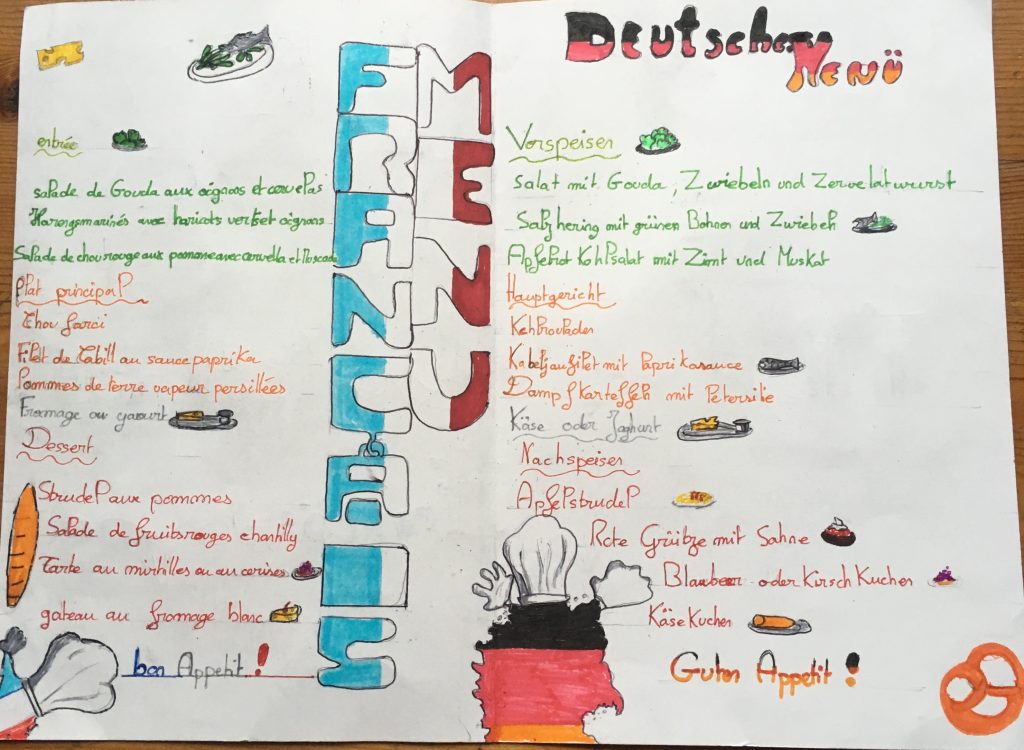 FRANÇAIS
MENU
entrée
Salade de Gouda aux oignons et cervelas
Harengs marinés avec haricots verts et oignons
Salade de chou rouge aux pomme avec cervella et Muscade
Plat principal
Chou farci
Filet de Cabill au sauce paprika
Pommes de terre vapeur persillées
Fromage ou yaourt
Dessert
Strudel aux pommes
Salade de fruits rouges chantilly
Tarte au mirtilles ou au cerises
gateau au fromage blanc
bon Appetit !
Deutsches
Menü
Vorspeisen
Salat mit Gouda, Zwiebeln und Zervelatwurst
Salzhering mit grünen Bohnen und Zwiebeln
Apfelrot Kohlsalat mit Zimt und Muskat
Hauptgericht
Kohlrouladen
Kabeljaufilet mit Paprikasauce
Dampfkartoffeln mit Petersilie
Käse oder Joghurt
Nachspeisen
Apfelstrudel
Rote Grüitze mit Sahne
Blaubeer oder Kirsch Kuchen
Käse Kuchen
Guten Appetit !